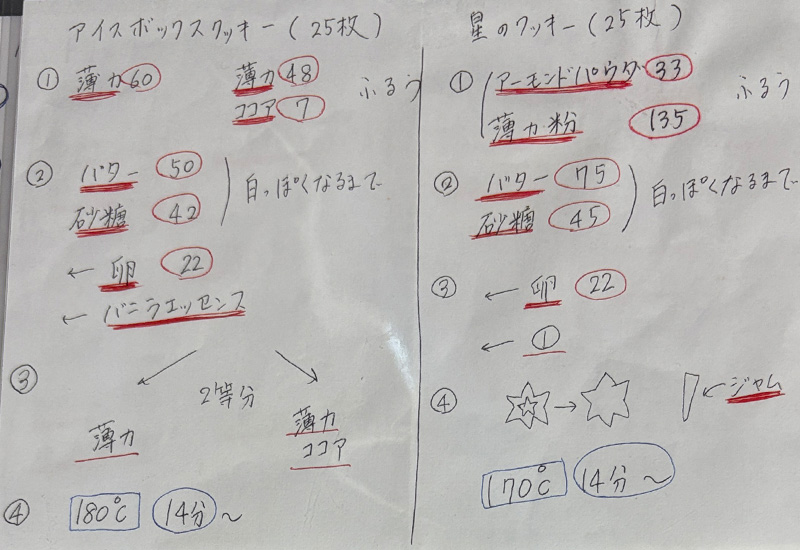 アイスボックスクッキー(25枚)
① 薄力60 薄力48 ふるう
ココア7
② バター 50 白っぽくなるまで
砂糖 42
← 卵 22
← バニラエッセンス
③ 2等分
薄力 薄力
ココア
④ 180℃ 14分〜
星のクッキー(25枚)
① アーモンドパウダ 33 ふるう
薄力粉 135
② バター 75 白っぽくなるまで
砂糖 45
③ ← 卵 22
← ①
④ → ← ジャム
170℃ 14分〜